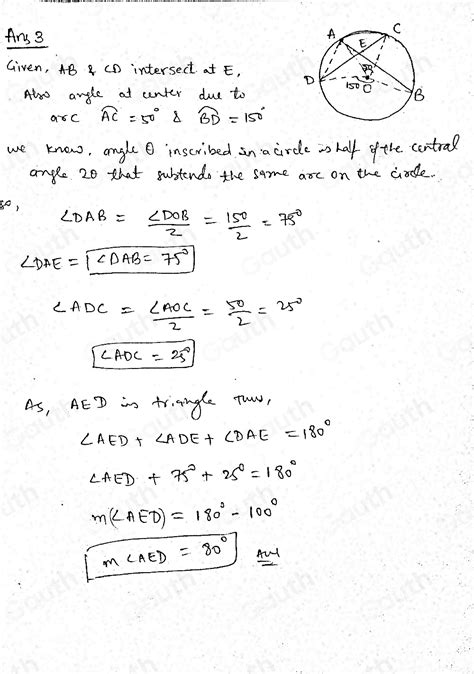 Ans 3
Given, AB & CD intersect at E,
Also angle at center due to
arc AC = 50° & BD = 150°
we know, angle θ inscribed in a circle is half of the central
angle 2θ that subtends the same arc on the circle.
so,
∠DAB = ∠DOB/2 = 150/2 = 75°
∠DAE = ∠DAB = 75°
∠ADC = ∠AOC/2 = 50/2 = 25°
∠ADC = 25°
As, AED is triangle Thus,
∠AED + ∠ADE + ∠DAE = 180°
∠AED + 75° + 25° = 180°
m(∠AED) = 180° - 100°
m∠AED = 80° Ans
A
C
E
D
150°
O
B
Gauth